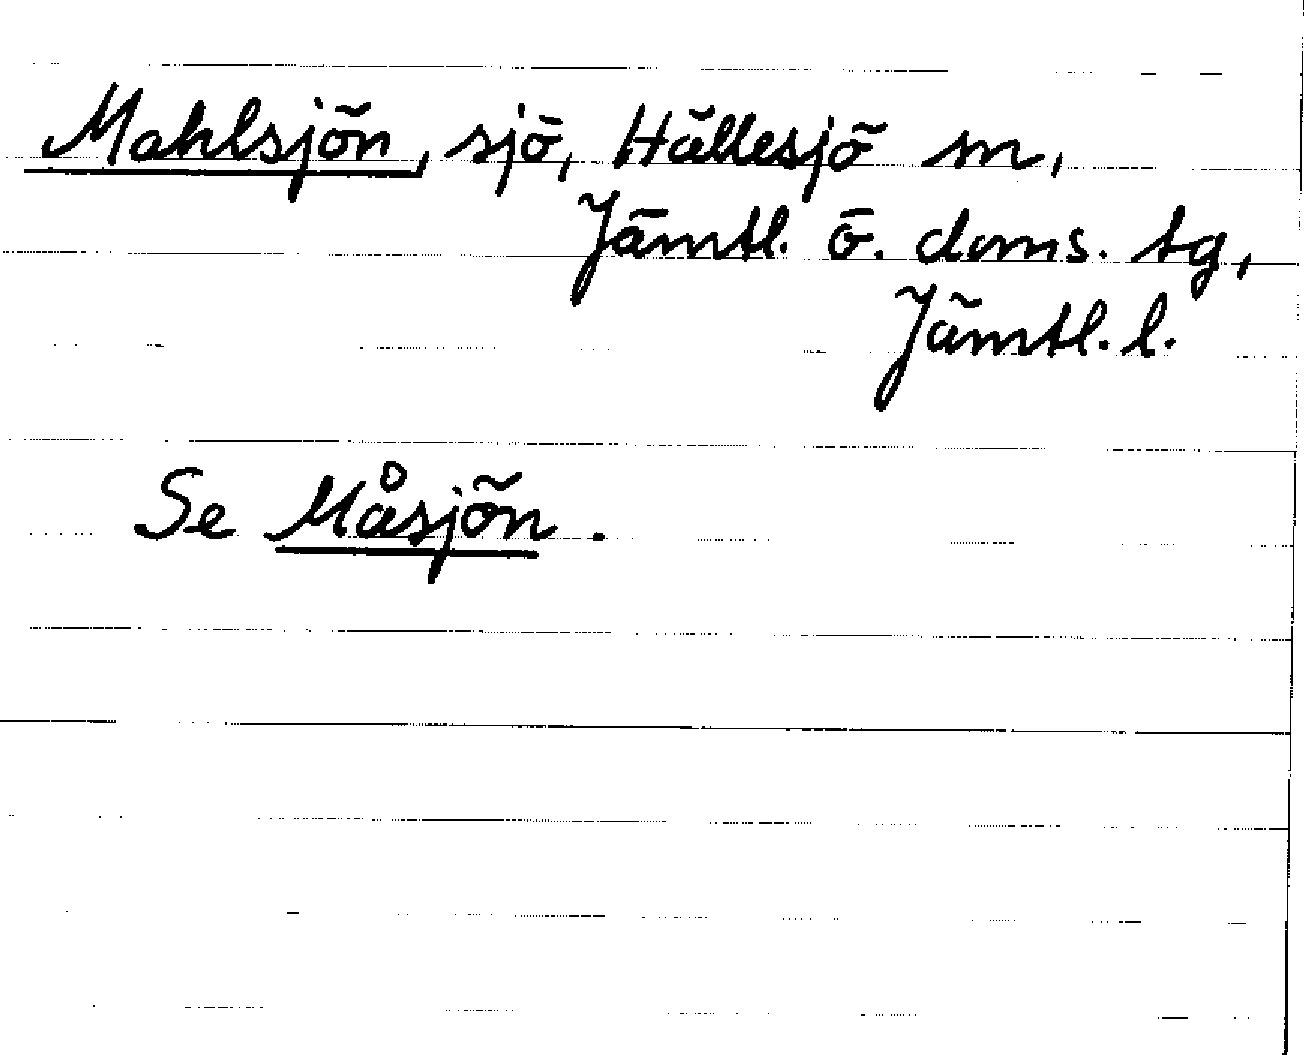 Mahlsjön, sjö, Hällesjö sn,
Jämtl. ö. doms. tg,
Jämtl. l.
Se Måsjön.